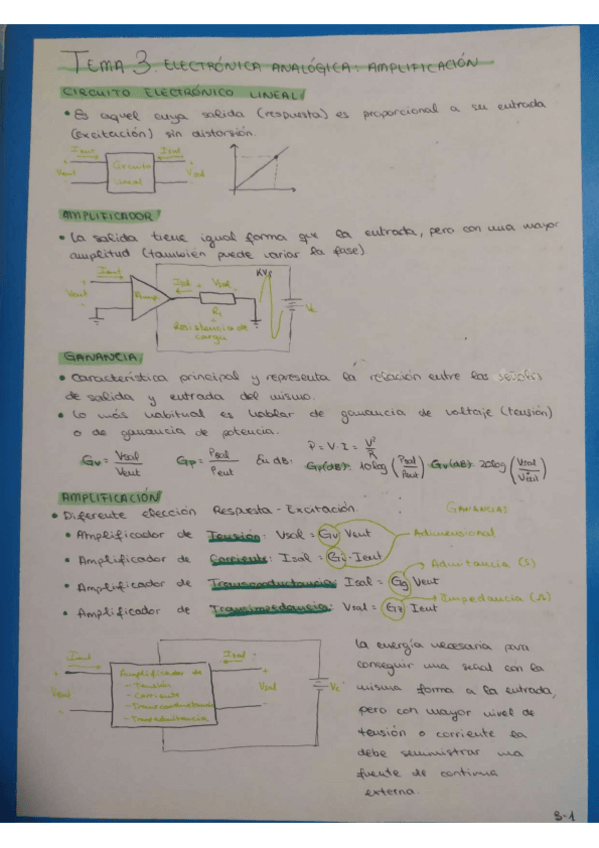 TEMA 3. ELECTRÓNICA ANALÓGICA: AMPLIFICACIÓN
CIRCUITO ELECTRÓNICO LINEAL
• Es aquel cuya salida (respuesta) es proporcional a su entrada
(excitación) sin distorsión.
Ient Isal
Vent Circuito Vsal
lineal
AMPLIFICADOR
• La salida tiene igual forma que la entrada, pero con una mayor
amplitud (también puede variar la fase)
Ient Isal Vsal KVs
Vent Amp. Vc
RL
Resistencia de
carga
GANANCIA
• Característica principal y representa la relación entre las señales
de salida y entrada del mismo.
• Lo más habitual es hablar de ganancia de voltaje (tensión)
o de ganancia de potencia. P = V·I = V²/R
Gv = Vsal/Vent Gp = Psal/Pent En dB: Gp(dB): 10log(Psal/Pent) Gv(dB): 20log(Vsal/Vent)
AMPLIFICACIÓN
• Diferente elección Respuesta - Excitación. GANANCIAS
• Amplificador de Tensión: Vsal = Gv Vent Adimensional
• Amplificador de Corriente: Isal = Gi·Ient
Admitancia (S)
• Amplificador de Transconductancia Isal = Gg Vent
Impedancia (Ω)
• Amplificador de Transimpedancia: Vsal = Ient
Ient Isal
Vent Amplificador de Vsal Vc
- Tensión
- Corriente
- Transconductancia
- Transadmitancia
La energía necesaria para
conseguir una señal con la
misma forma a la entrada,
pero con mayor nivel de
tensión o corriente la
debe suministrar una
fuente de continua
externa.
3-1